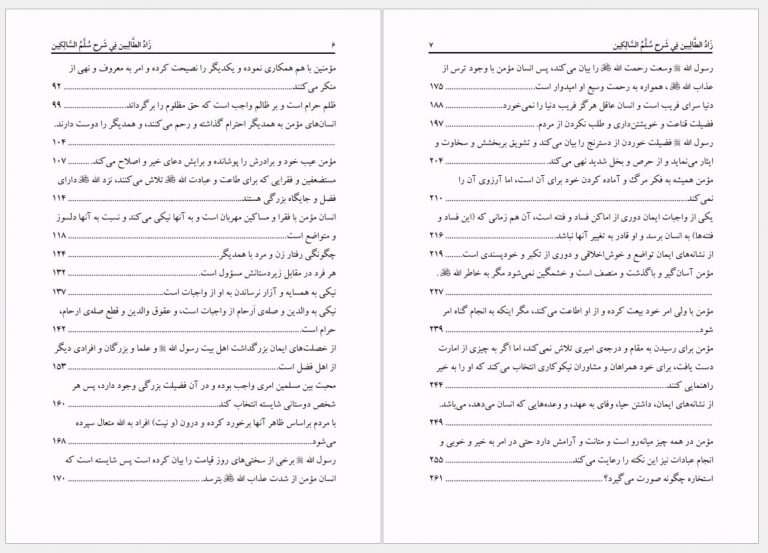 زَادُ الطَّالِبِين فِي شَرحِ سُلَّمُ السَّالِكِين
۶
مؤمنین با هم همکاری نموده و یکدیگر را نصیحت کرده و امر به معروف و نهی از
منکر می‌کنند ۹۲
ظلم حرام است و بر ظالم واجب است که حق مظلوم را برگرداند. ۹۹
انسان‌های مؤمن به همدیگر احترام گذاشته و رحم می‌کنند، و همدیگر را دوست دارند.
۱۰۴
مؤمن عیب خود و برادرش را پوشانده و برایش دعای خیر و اصلاح می‌کند. ۱۰۷
مستضعفین و فقرایی که برای طاعت و عبادت الله ﷻ تلاش می‌کنند، نزد الله ﷻ دارای
فضل و جایگاه بزرگی هستند. ۱۱۴
انسان مؤمن با فقرا و مساکین مهربان است و به آنها نیکی می‌کند و نسبت به آنها دلسوز
و متواضع است. ۱۱۸
چگونگی رفتار زن و مرد با همدیگر. ۱۲۴
هر فرد در مقابل زیردستانش مسؤول است. ۱۳۲
نیکی به همسایه و آزار نرساندن به او از واجبات است. ۱۳۷
نیکی به والدین و صله‌ی اَرحام از واجبات است، و عقوق والدین و قطع صله‌ی ارحام،
حرام است. ۱۴۲
از خصلت‌های ایمان بزرگداشت اهل بیت رسول الله ﷺ و علما و بزرگان و افرادی دیگر
از اهل فضل است. ۱۵۳
محبت بین مسلمین امری واجب بوده و در آن فضیلت بزرگی وجود دارد، پس هر
شخص دوستانی شایسته انتخاب کند. ۱۶۰
با مردم براساس ظاهر آنها برخورد کرده و درون (و نیت) افراد به الله متعال سپرده
می‌شود. ۱۶۸
رسول الله ﷺ برخی از سختی‌های روز قیامت را بیان کرده است پس شایسته است که
انسان مؤمن از شدت عذاب الله ﷻ بترسد. ۱۷۰
زَادُ الطَّالِبِين فِي شَرحِ سُلَّمُ السَّالِكِين
۷
رسول الله ﷺ وسعت رحمت الله ﷻ را بیان می‌کند، پس انسان مؤمن با وجود ترس از
عذاب الله ﷻ، همواره به رحمت وسیع او امیدوار است. ۱۷۵
دنیا سرای فریب است و انسان عاقل هرگز فریب دنیا را نمی‌خورد ۱۸۸
فضیلت قناعت و خویشتن‌داری و طلب نکردن از مردم. ۱۹۷
رسول الله ﷺ فضیلت خوردن از دسترنج را بیان می‌کند و تشویق بربخشش و سخاوت و
ایثار می‌نماید و از حرص و بخل شدید نهی می‌کند. ۲۰۴
مؤمن همیشه به فکر مرگ و آماده کردن خود برای آن است، اما آرزوی آن را
نمی‌کند. ۲۱۰
یکی از واجبات ایمان دوری از اماکن فساد و فتنه است، آن هم زمانی که (این فساد و
فتنه‌ها) به انسان برسد و او قادر به تغییر آنها نباشد. ۲۱۶
از نشانه‌های ایمان تواضع و خوش‌اخلاقی و دوری از تکبر و خودپسندی است. ۲۱۹
مؤمن آسان‌گیر و باگذشت و منصف است و خشمگین نمی‌شود مگر به خاطر الله ﷻ.
۲۲۷
مؤمن با ولی امر خود بیعت کرده و از او اطاعت می‌کند، مگر اینکه به انجام گناه امر
شود. ۲۳۹
مؤمن برای رسیدن به مقام و درجه‌ی امیری تلاش نمی‌کند، اما اگر به چیزی از امارت
دست یافت، برای خود همراهان و مشاوران نیکوکاری انتخاب می‌کند که او را به خیر
راهنمایی کنند. ۲۴۴
از نشانه‌های ایمان، داشتن حیا، وفای به عهد، و وعده‌هایی که انسان می‌دهد، می‌باشد.
۲۴۹
مؤمن در همه چیز میانه‌رو است و متانت و آرامش دارد حتی در امر به خیر و خوبی و
انجام عبادات نیز این نکته را رعایت می‌کند. ۲۵۵
استخاره چگونه صورت می‌گیرد؟ ۲۶۱